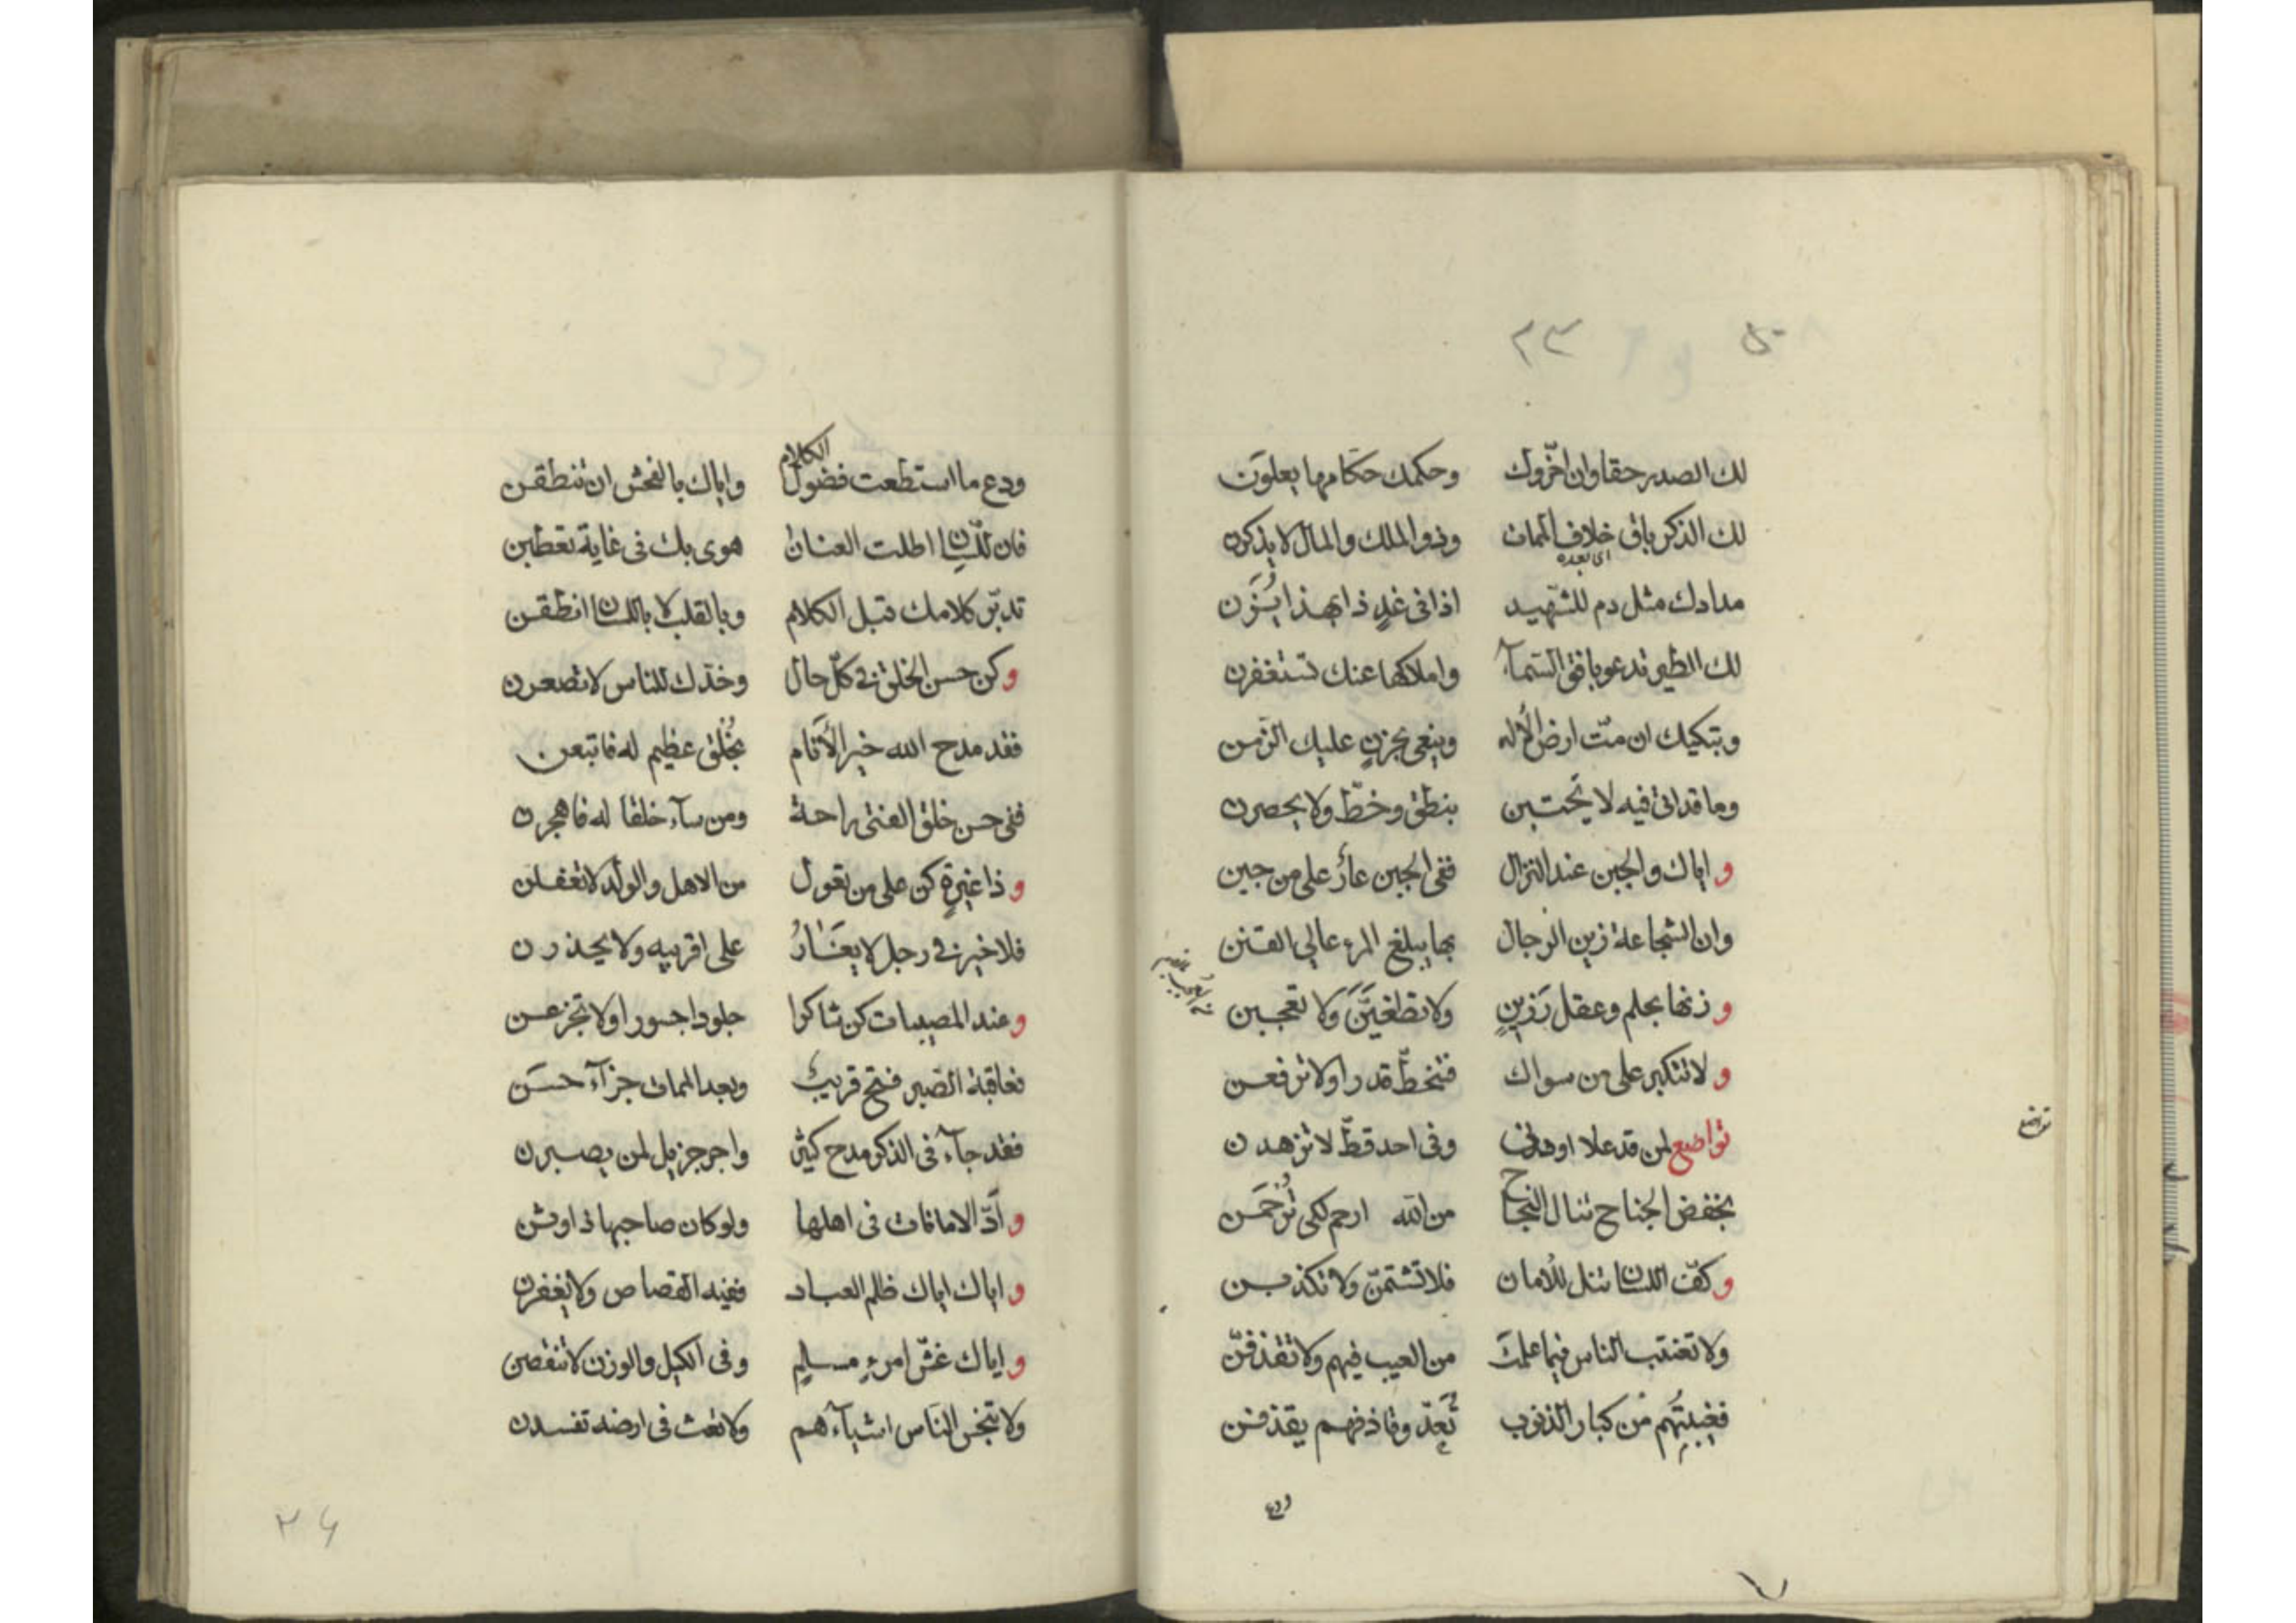 ٢٣
لك الصدر حقا وان اخّروك وحكمك حكّامها يعلون
لك الذكر باق خلاف الممات وذو الملك والمال لا يذكرن
اى بعده
مدادك مثل دم للشّهيد اذا فى غدٍ ذا بهذا يُوزن
لك الطير تدعو بافق السّمآء واملاكها عنك تستغفرن
وتبكيك ان متّ ارض الإله وينعى بحزنٍ عليك الزّمن
وما قد اتى فيه لا يحتبين بنطق وخطّ ولا يحصرن
و اياك والجبن عند النزال ففى الجبن عارٌ على من جبن
وان الشجاعة زين الرجال بها يبلغ المرء عالى القنن
و زنها بحلم وعقل رَزينٍ ولا تطغيَنَّ ولا تعجبن
و لا تتكبر على من سواك فتنحطّ قدرا ولا ترفعن
تواضع لمن قد علا او دنى وفى احد قطّ لا تزهدن
تواضع
بخفض الجناح تنال النجاح من الله ارحم لكى تُرحَمن
و كفّ اللسان تنل للامان فلا تشتمنّ ولا تكذبن
ولا تغتب الناس فيما علمتَ من العيب فيهم ولا تقذفنّ
فغيبتُهم من كبار الذنوب تُعدّ وقاذفهم يقذفن
ودع
ودع ما استطعت فضول الكلام واياك بالفحش ان تنطقن
فان للّسان اطلت العنان هوى بك فى غاية تعطبن
تدبّر كلامك قبل الكلام وبالقلب لا باللسان انطقن
و كن حسن الخلق فى كلّ حال وخدّك للناس لا تصعرن
فقد مدح الله خير الأنام بخُلق عظيم له فاتبعن
ففى حسن خلق الفتى راحة ومن سآء خلقا له فاهجرن
و ذا غيرةٍ كن على من تعول من الاهل والولد لا تغفلن
فلا خير فى رجل لا يغَارُ على اقربيه ولا يحذرن
و عند المصيبات كن شاكرا جلودا جسورا ولا تجزعن
فعاقبة الصّبر فتح قريب وبعد الممات جزآء حسَن
فقد جآء فى الذكر مدح كثير واجر جزيل لمن يصبرن
و أدّ الامانات فى اهلها ولو كان صاحبها ذا وثن
و اياك اياك ظلم العباد ففيه القصاص ولا يغفرن
و اياك غشّ امرءٍ مسلمٍ وفى الكيل والوزن لا تنقصن
ولا تبخس النّاس اشيآءهم ولا تعث فى ارضه تفسدن
٢٤